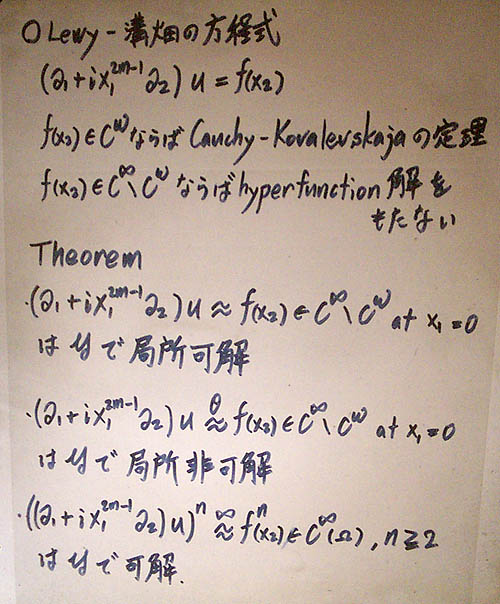 ○Lewy-溝畑の方程式
(∂₁+ix₁²ᵐ⁻¹∂₂)u=f(x₂)
f(x₂)∈C^ωならばCauchy-Kovalevskajaの定理
f(x₂)∈C^∞\C^ωならばhyperfunction解を
もたない
Theorem
・(∂₁+ix₁²ᵐ⁻¹∂₂)u≈f(x₂)∈C^∞\C^ω at x₁=0
は𝒢で局所可解
・(∂₁+ix₁²ᵐ⁻¹∂₂)u ≈^θ f(x₂)∈C^∞\C^ω at x₁=0
は𝒢で局所非可解
・((∂₁+ix₁²ᵐ⁻¹∂₂)u)ⁿ ≈^∞ fⁿ(x₂)∈C^∞(Ω), n≧2
は𝒢で可解.